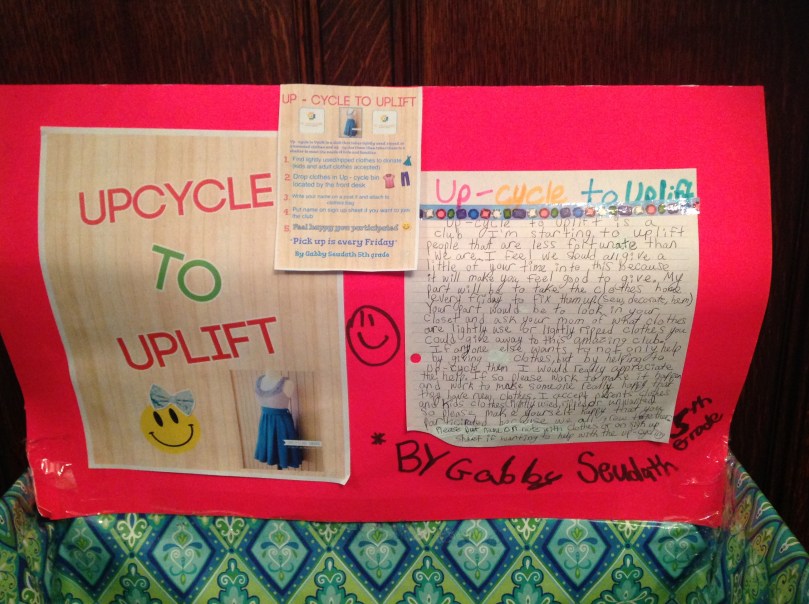 UPCYCLE
TO
UPLIFT
UP - CYCLE TO UPLIFT
1. Find lightly used/ripped clothes to donate
(kids and adult clothes accepted)
2. Drop clothes in Up - cycle bin
located by the front desk
3. Write your name on a post it and attach to
clothes bag
4. Put name on sign up sheet if you want to join
the club
5. Feel happy you participated
*Pick up is every Friday*
By Gabby Seudath 5th grade
Up-cycle to Uplift
Up-cycle to Uplift is a
club I'm starting to uplift
people that are less fortunate than
we are. I feel we should all give a
little of your time into this because
it will make you feel good to give. My
part will be to take the clothes home
every friday to fix them up (sew, decorate, hem)
Your part would be to look in your
closet and ask your mom or what clothes
are lightly use or lightly ripped clothes you
could give away to this amazing club.
If anyone else wants to not only help
by giving clothes but by helping to
up-cycle then I would really appreciate
the help. If so please work to make it happen
and work to make someone really happy that
they have new clothes. I accept parents clothes
and kids clothes, lightly used, ripped or unwanted
so please make yourself happy that you
participated because we all
Please put name on note with clothes or on sign up
sheet if wanting to help with the up-cycling
* BY Gabby Seudath
5th
Grade